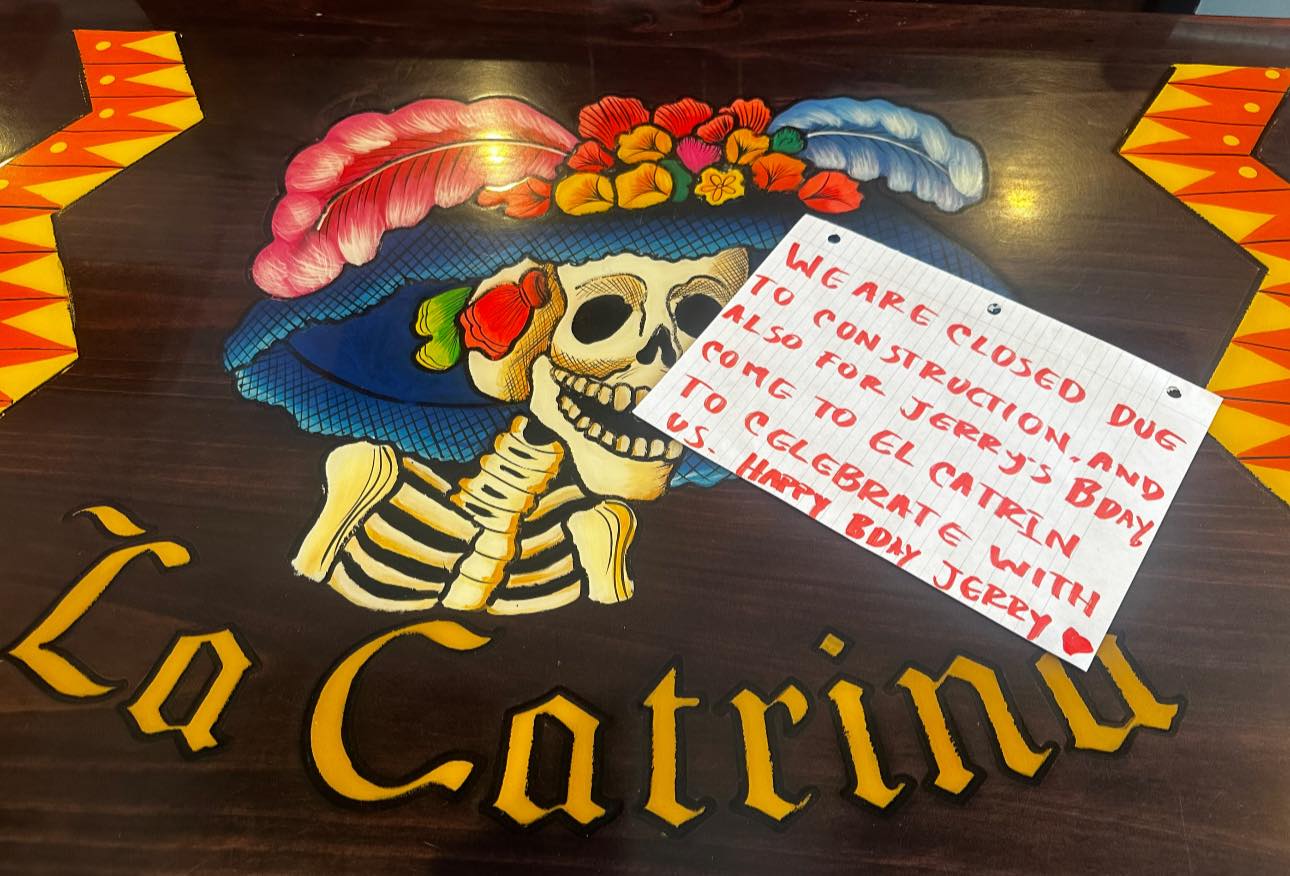 WE ARE CLOSED DUE
TO CONSTRUCTION, AND
ALSO FOR JERRY'S BDAY,
COME TO EL CATRÍN
TO CELEBRATE WITH
US. HAPPY BDAY JERRY ♥
La Catrina